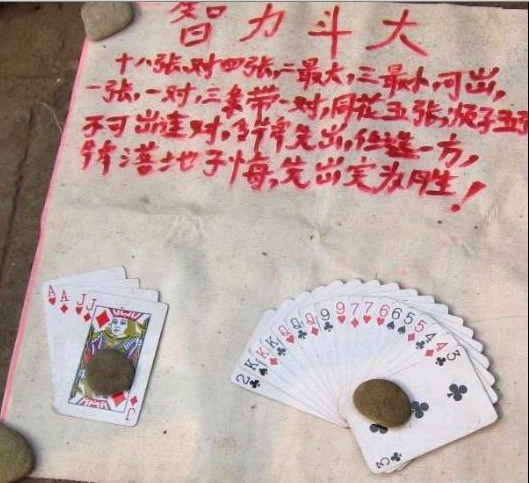 智力斗大
十八张,对四张,二最大,三最小,可出,
一张,一对,三条带一对,同花五张,顺子五
不可出连对,先出,任选一方,
牌落地不悔,先出完为胜!
A A J J
J
2 K K K Q Q Q 9 9 7 7 6 6 5 5 4 4 3
3